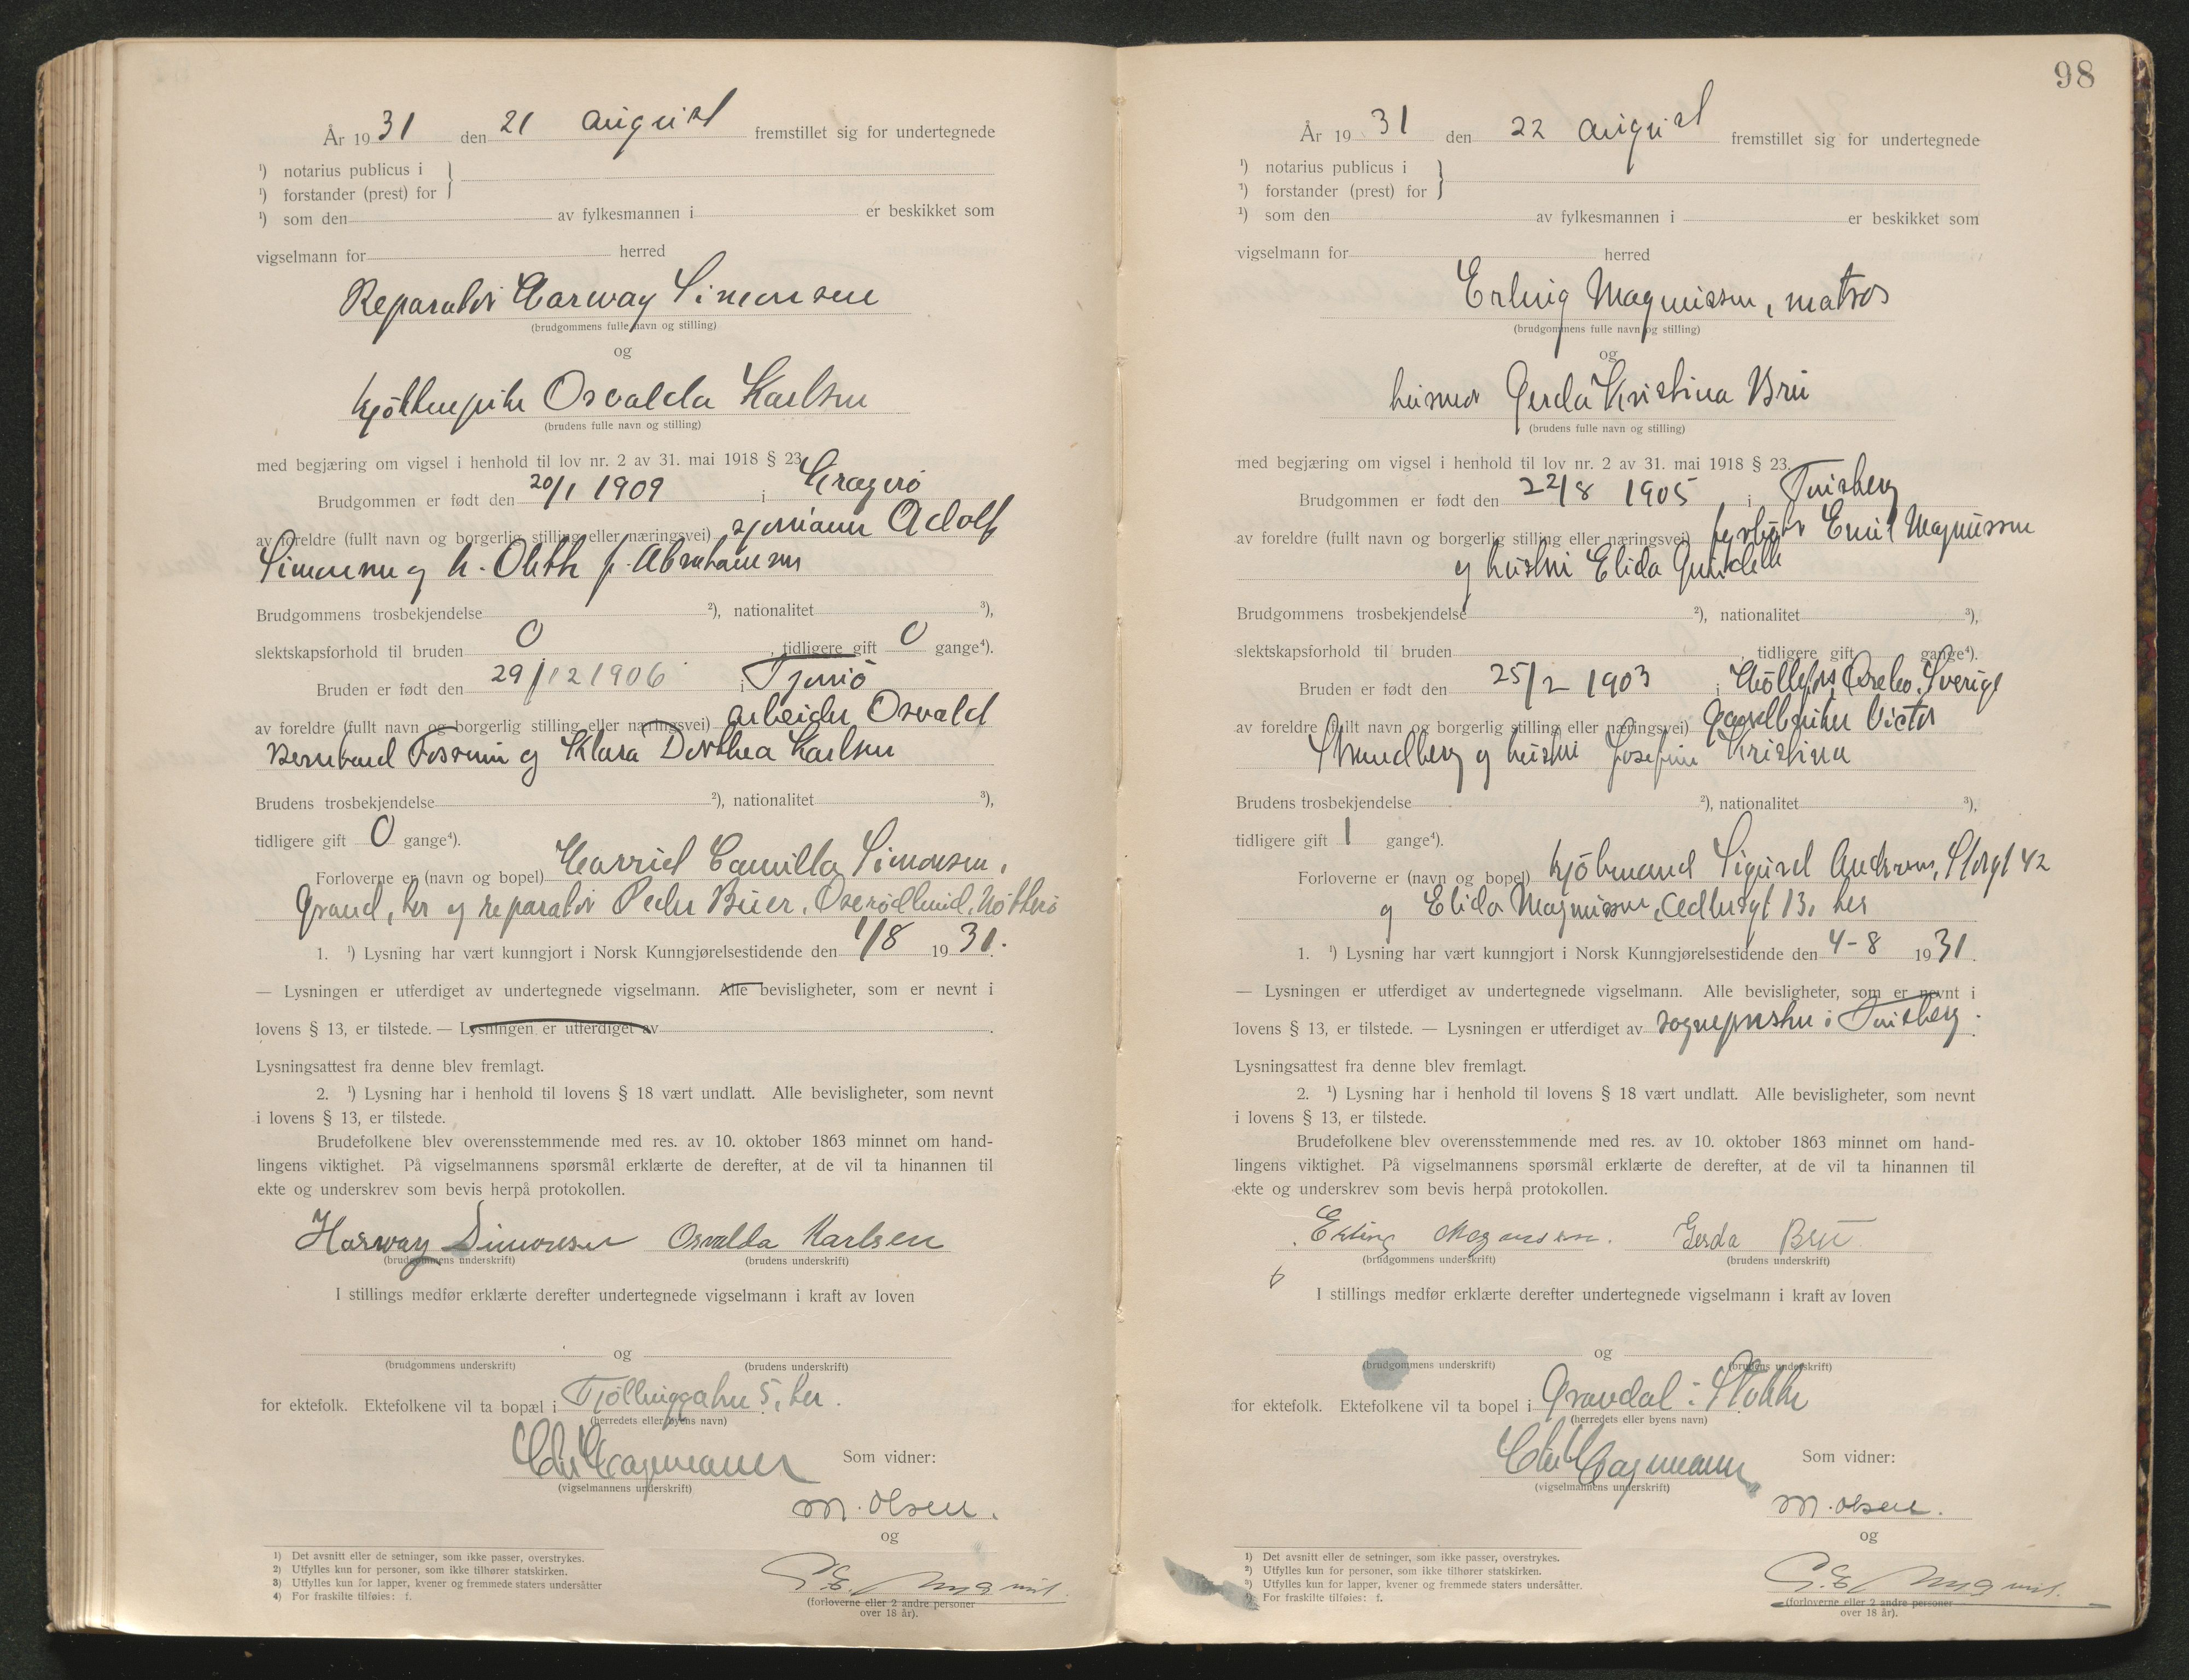 År 1931 den 21 august fremstillet sig for undertegnede
¹) notarius publicus i
¹) forstander (prest) for
¹) som den av fylkesmannen i er beskikket som
vigselmann for herred
Reparatør Harway Simonsen
(brudgommens fulle navn og stilling)
og
Osvalda Karlsen
(brudens fulle navn og stilling)
med begjæring om vigsel i henhold til lov nr. 2 av 31. mai 1918 § 23.
Brudgommen er født den 20/1 1909 i Kragerø
av foreldre (fullt navn og borgerlig stilling eller næringsvei) sjømann Adolf
Simonsen og h. f. Abrahamsen
Brudgommens trosbekjendelse ²), nationalitet ³),
slektskapsforhold til bruden 0, tidligere gift 0 gange⁴).
Bruden er født den 29/12 1906 i Tjømø
av foreldre (fullt navn og borgerlig stilling eller næringsvei) arbeider Osvald
Bernhard og Klara Dorthea Karlsen
Brudens trosbekjendelse ²), nationalitet ³),
tidligere gift 0 gange⁴).
Forloverne er (navn og bopel) Harriet Camilla Simonsen,
Grand, her og reparatør Peder Buer,
1. ¹) Lysning har vært kunngjort i Norsk Kunngjørelsestidende den 1/8 1931.
— Lysningen er utferdiget av undertegnede vigselmann. Alle bevisligheter, som er nevnt i
lovens § 13, er tilstede. — Lysningen er utferdiget av
Lysningsattest fra denne blev fremlagt.
2. ¹) Lysning har i henhold til lovens § 18 vært undlatt. Alle bevisligheter, som nevnt
i lovens § 13, er tilstede.
Brudefolkene blev overensstemmende med res. av 10. oktober 1863 minnet om hand-
lingens viktighet. På vigselmannens spørsmål erklærte de derefter, at de vil ta hinannen til
ekte og underskrev som bevis herpå protokollen.
Harway Simonsen Osvalda Karlsen
(brudgommens underskrift) (brudens underskrift)
I stillings medfør erklærte derefter undertegnede vigselmann i kraft av loven
og
(brudgommens underskrift) (brudens underskrift)
for ektefolk. Ektefolkene vil ta bopæl i 5, her.
(herredets eller byens navn)
Som vidner:
(vigselmannens underskrift)
M. Olsen.
og
(forloverne eller 2 andre personer
over 18 år).
1) Det avsnitt eller de setninger, som ikke passer, overstrykes.
2) Utfylles kun for personer, som ikke tilhører statskirken.
3) Utfylles kun for lapper, kvener og fremmede staters undersåtter
4) For fraskilte tilføies: f.
98
År 1931 den 22 august fremstillet sig for undertegnede
¹) notarius publicus i
¹) forstander (prest) for
¹) som den av fylkesmannen i er beskikket som
vigselmann for herred
Erling Magnussen, matros
(brudgommens fulle navn og stilling)
og
husmor Gerda Kristina Bru
(brudens fulle navn og stilling)
med begjæring om vigsel i henhold til lov nr. 2 av 31. mai 1918 § 23.
Brudgommen er født den 22/8 1905 i Tønsberg
av foreldre (fullt navn og borgerlig stilling eller næringsvei) fyrbøter Emil Magnussen
og hustru Elida
Brudgommens trosbekjendelse ²), nationalitet ³),
slektskapsforhold til bruden, tidligere gift gange⁴).
Bruden er født den 25/2 1903 i Örebro, Sverige
av foreldre (fullt navn og borgerlig stilling eller næringsvei) Victor
Strandberg og hustru Josefine Kristina
Brudens trosbekjendelse ²), nationalitet ³),
tidligere gift 1 gange⁴).
Forloverne er (navn og bopel) kjøbmand Sigurd Andersen, Storgt 42
og Elida Magnussen, 13, her
1. ¹) Lysning har vært kunngjort i Norsk Kunngjørelsestidende den 4-8 1931.
— Lysningen er utferdiget av undertegnede vigselmann. Alle bevisligheter, som er nevnt i
lovens § 13, er tilstede. — Lysningen er utferdiget av sogneprsten i Tønsberg.
Lysningsattest fra denne blev fremlagt.
2. ¹) Lysning har i henhold til lovens § 18 vært undlatt. Alle bevisligheter, som nevnt
i lovens § 13, er tilstede.
Brudefolkene blev overensstemmende med res. av 10. oktober 1863 minnet om hand-
lingens viktighet. På vigselmannens spørsmål erklærte de derefter, at de vil ta hinannen til
ekte og underskrev som bevis herpå protokollen.
Erling Magnussen. Gerda Bru
(brudgommens underskrift) (brudens underskrift)
I stillings medfør erklærte derefter undertegnede vigselmann i kraft av loven
og
(brudgommens underskrift) (brudens underskrift)
for ektefolk. Ektefolkene vil ta bopel i Grandal i Stokke
(herredets eller byens navn)
Som vidner:
(vigselmannens underskrift)
M. Olsen.
og
(forloverne eller 2 andre personer
over 18 år).
1) Det avsnitt eller de setninger, som ikke passer, overstrykes.
2) Utfylles kun for personer, som ikke tilhører statskirken.
3) Utfylles kun for lapper, kvener og fremmede staters undersåtter.
4) For fraskilte tilføies: f.